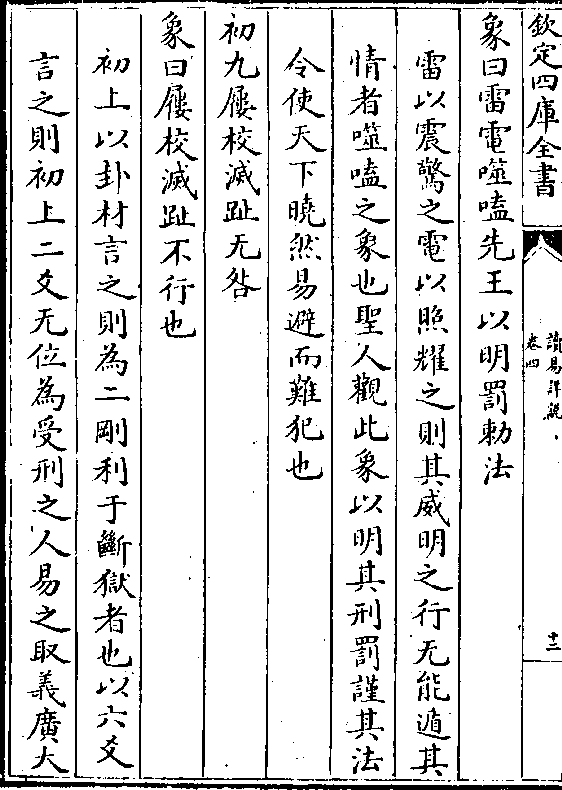 欽定四庫全書
讀易詳説
卷四
十二
象曰雷電噬嗑先王以明罰勅法
雷以震驚之電以照耀之則其威明之行无能遁其
情者噬嗑之象也聖人觀此象以明其刑罰謹其法
令使天下曉然易避而難犯也
初九屨校滅趾无咎
象曰屨校滅趾不行也
初上以卦材言之則為二剛利于斷獄者也以六爻
言之則初上二爻无位為受刑之人易之取義廣大